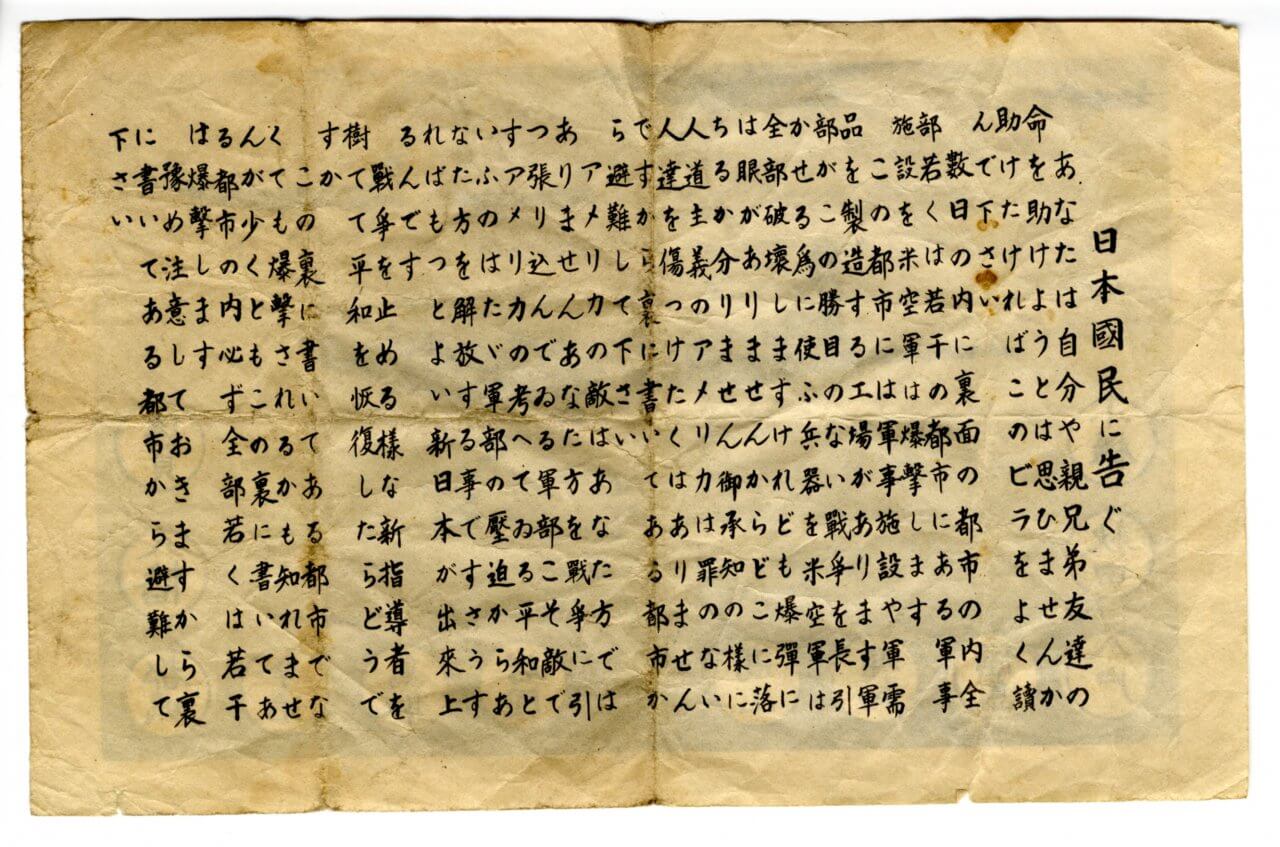 日本國民に告ぐ
あなたは自分や親兄弟友達の
命を助けようとは思ひませんか
助けたければこのビラをよく讀
んで下さい
数日の内に裏面の都市の内全
部若くは若干の都市にある軍事
施設を米空軍は爆撃します
この都市には軍事施設や軍需
品を製造する工場があります軍
部がこの勝目のない戦爭を長引
かせる爲に使ふ兵器を米空軍は
全部破壞しますけれども爆彈に
は眼がありませんからどこに落
ちるか分りません御承知の様に
人道主義のアメリカは罪のない
人達を傷つけたくはありません
ですから裏に書いてある都市か
ら避難して下さい
アメリカの敵はあなた方では
ありませんあなた方を戦爭に引
つ張り込んでゐる軍部こそ敵で
すアメリカの考へてゐる平和と
いふのはたゞ軍部の壓迫からあ
なた方を解放する事ですさうす
ればもつとよい新日本が出來上
るんです
戦爭を止める様な新指導者を
樹てて平和を恢復したらどうで
すか
この裏に書いてある都市でな
くても爆撃されるかも知れませ
んが少くともこの裏に書いてあ
る都市の内必ず全部若くは若干
は爆撃します
豫め注意しておきますから裏
に書いてある都市から避難して
下さい